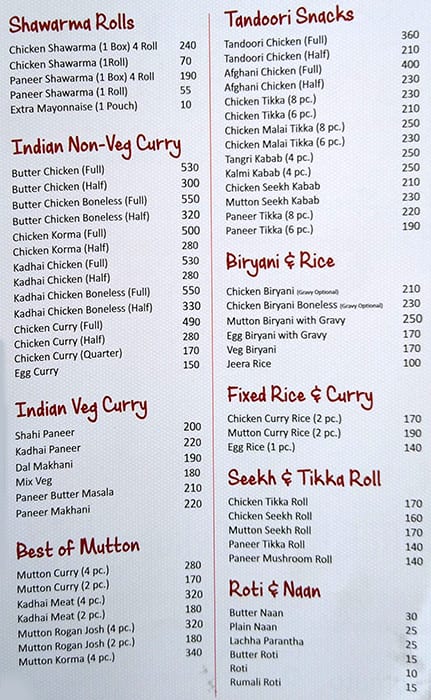 Shawarma Rolls
Chicken Shawarma (1 Box) 4 Roll 240
Chicken Shawarma (1Roll) 70
Paneer Shawarma (1 Box) 4 Roll 190
Paneer Shawarma (1 Roll) 55
Extra Mayonnaise (1 Pouch) 10
Indian Non-Veg Curry
Butter Chicken (Full) 530
Butter Chicken (Half) 300
Butter Chicken Boneless (Full) 550
Butter Chicken Boneless (Half) 320
Chicken Korma (Full) 500
Chicken Korma (Half) 280
Kadhai Chicken (Full) 530
Kadhai Chicken (Half) 280
Kadhai Chicken Boneless (Full) 550
Kadhai Chicken Boneless (Half) 330
Chicken Curry (Full) 490
Chicken Curry (Half) 280
Chicken Curry (Quarter) 170
Egg Curry 150
Indian Veg Curry
Shahi Paneer 200
Kadhai Paneer 220
Dal Makhani 190
Mix Veg 180
Paneer Butter Masala 210
Paneer Makhani 220
Best of Mutton
Mutton Curry (4 pc.) 280
Mutton Curry (2 pc.) 170
Kadhai Meat (4 pc.) 320
Kadhai Meat (2 pc.) 180
Mutton Rogan Josh (4 pc.) 320
Mutton Rogan Josh (2 pc.) 180
Mutton Korma (4 pc.) 340
Tandoori Snacks
Tandoori Chicken (Full) 360
Tandoori Chicken (Half) 210
Afghani Chicken (Full) 400
Afghani Chicken (Half) 230
Chicken Tikka (8 pc.) 230
Chicken Tikka (6 pc.) 210
Chicken Malai Tikka (8 pc.) 250
Chicken Malai Tikka (6 pc.) 230
Tangri Kabab (4 pc.) 250
Kalmi Kabab (4 pc.) 250
Chicken Seekh Kabab 210
Mutton Seekh Kabab 230
Paneer Tikka (8 pc.) 220
Paneer Tikka (6 pc.) 190
Biryani & Rice
Chicken Biryani (Gravy Optional) 210
Chicken Biryani Boneless (Gravy Optional) 230
Mutton Biryani with Gravy 250
Egg Biryani with Gravy 170
Veg Biryani 170
Jeera Rice 100
Fixed Rice & Curry
Chicken Curry Rice (2 pc.) 170
Mutton Curry Rice (2 pc.) 190
Egg Rice (1 pc.) 140
Seekh & Tikka Roll
Chicken Tikka Roll 170
Chicken Seekh Roll 160
Mutton Seekh Roll 170
Paneer Tikka Roll 140
Paneer Mushroom Roll 140
Roti & Naan
Butter Naan 30
Plain Naan 25
Lachha Parantha 25
Butter Roti 15
Roti 10
Rumali Roti 15